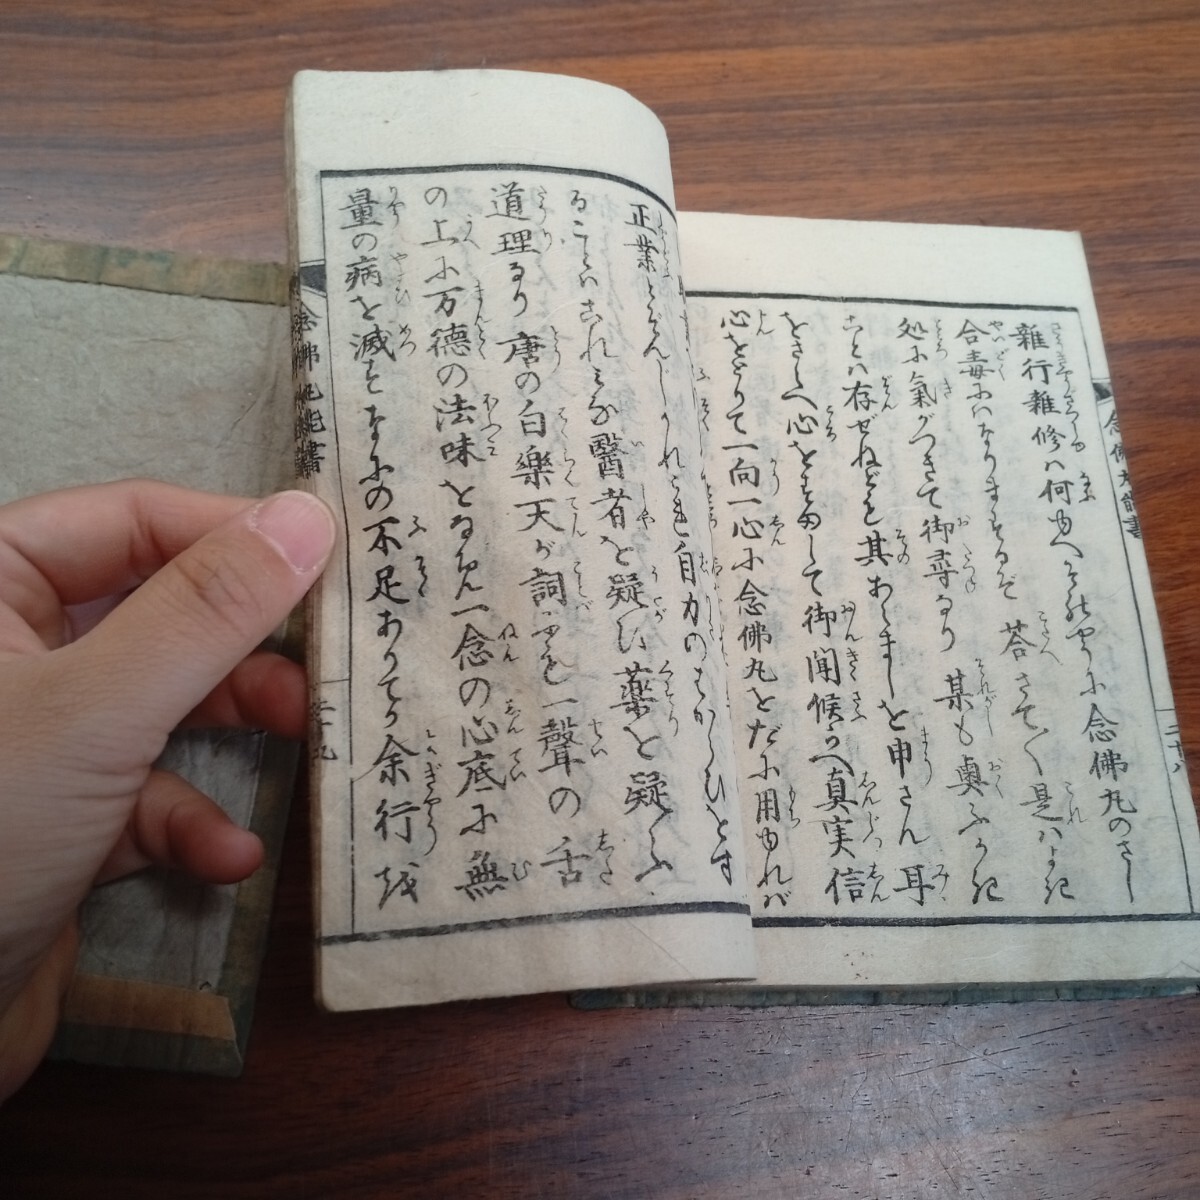 雜行雜修ハ何ゆへそのやうに念佛丸のさし
合毒にハなりまするぞ 荅さて〱是ハよき
処に氣がつきて御尋なり 某も奥ふかき
ことハ存ぜねども其あらましを申さん耳
をさらへ心をすまして御聞候らへ真実信
心をとりて一向一心に念佛丸をだに用ゆれバ
正業とぞんしかれども自力のはからひをす
ることハこれみな醫者を疑ひ薬を疑ふ
道理なり 唐の白樂天が詞にも一聲の舌
の上に万德の法味をなめ一念の心底に無
量の病を滅すなにの不足ありてか余行を
念佛丸能書
二十八